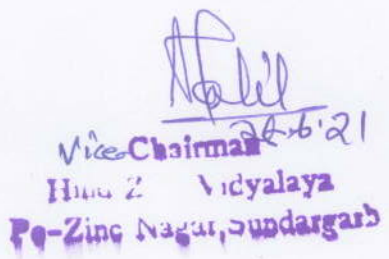 26.6.21
Vice Chairman
Vidyalaya
Po-Zinc Nagar, Sundargarh